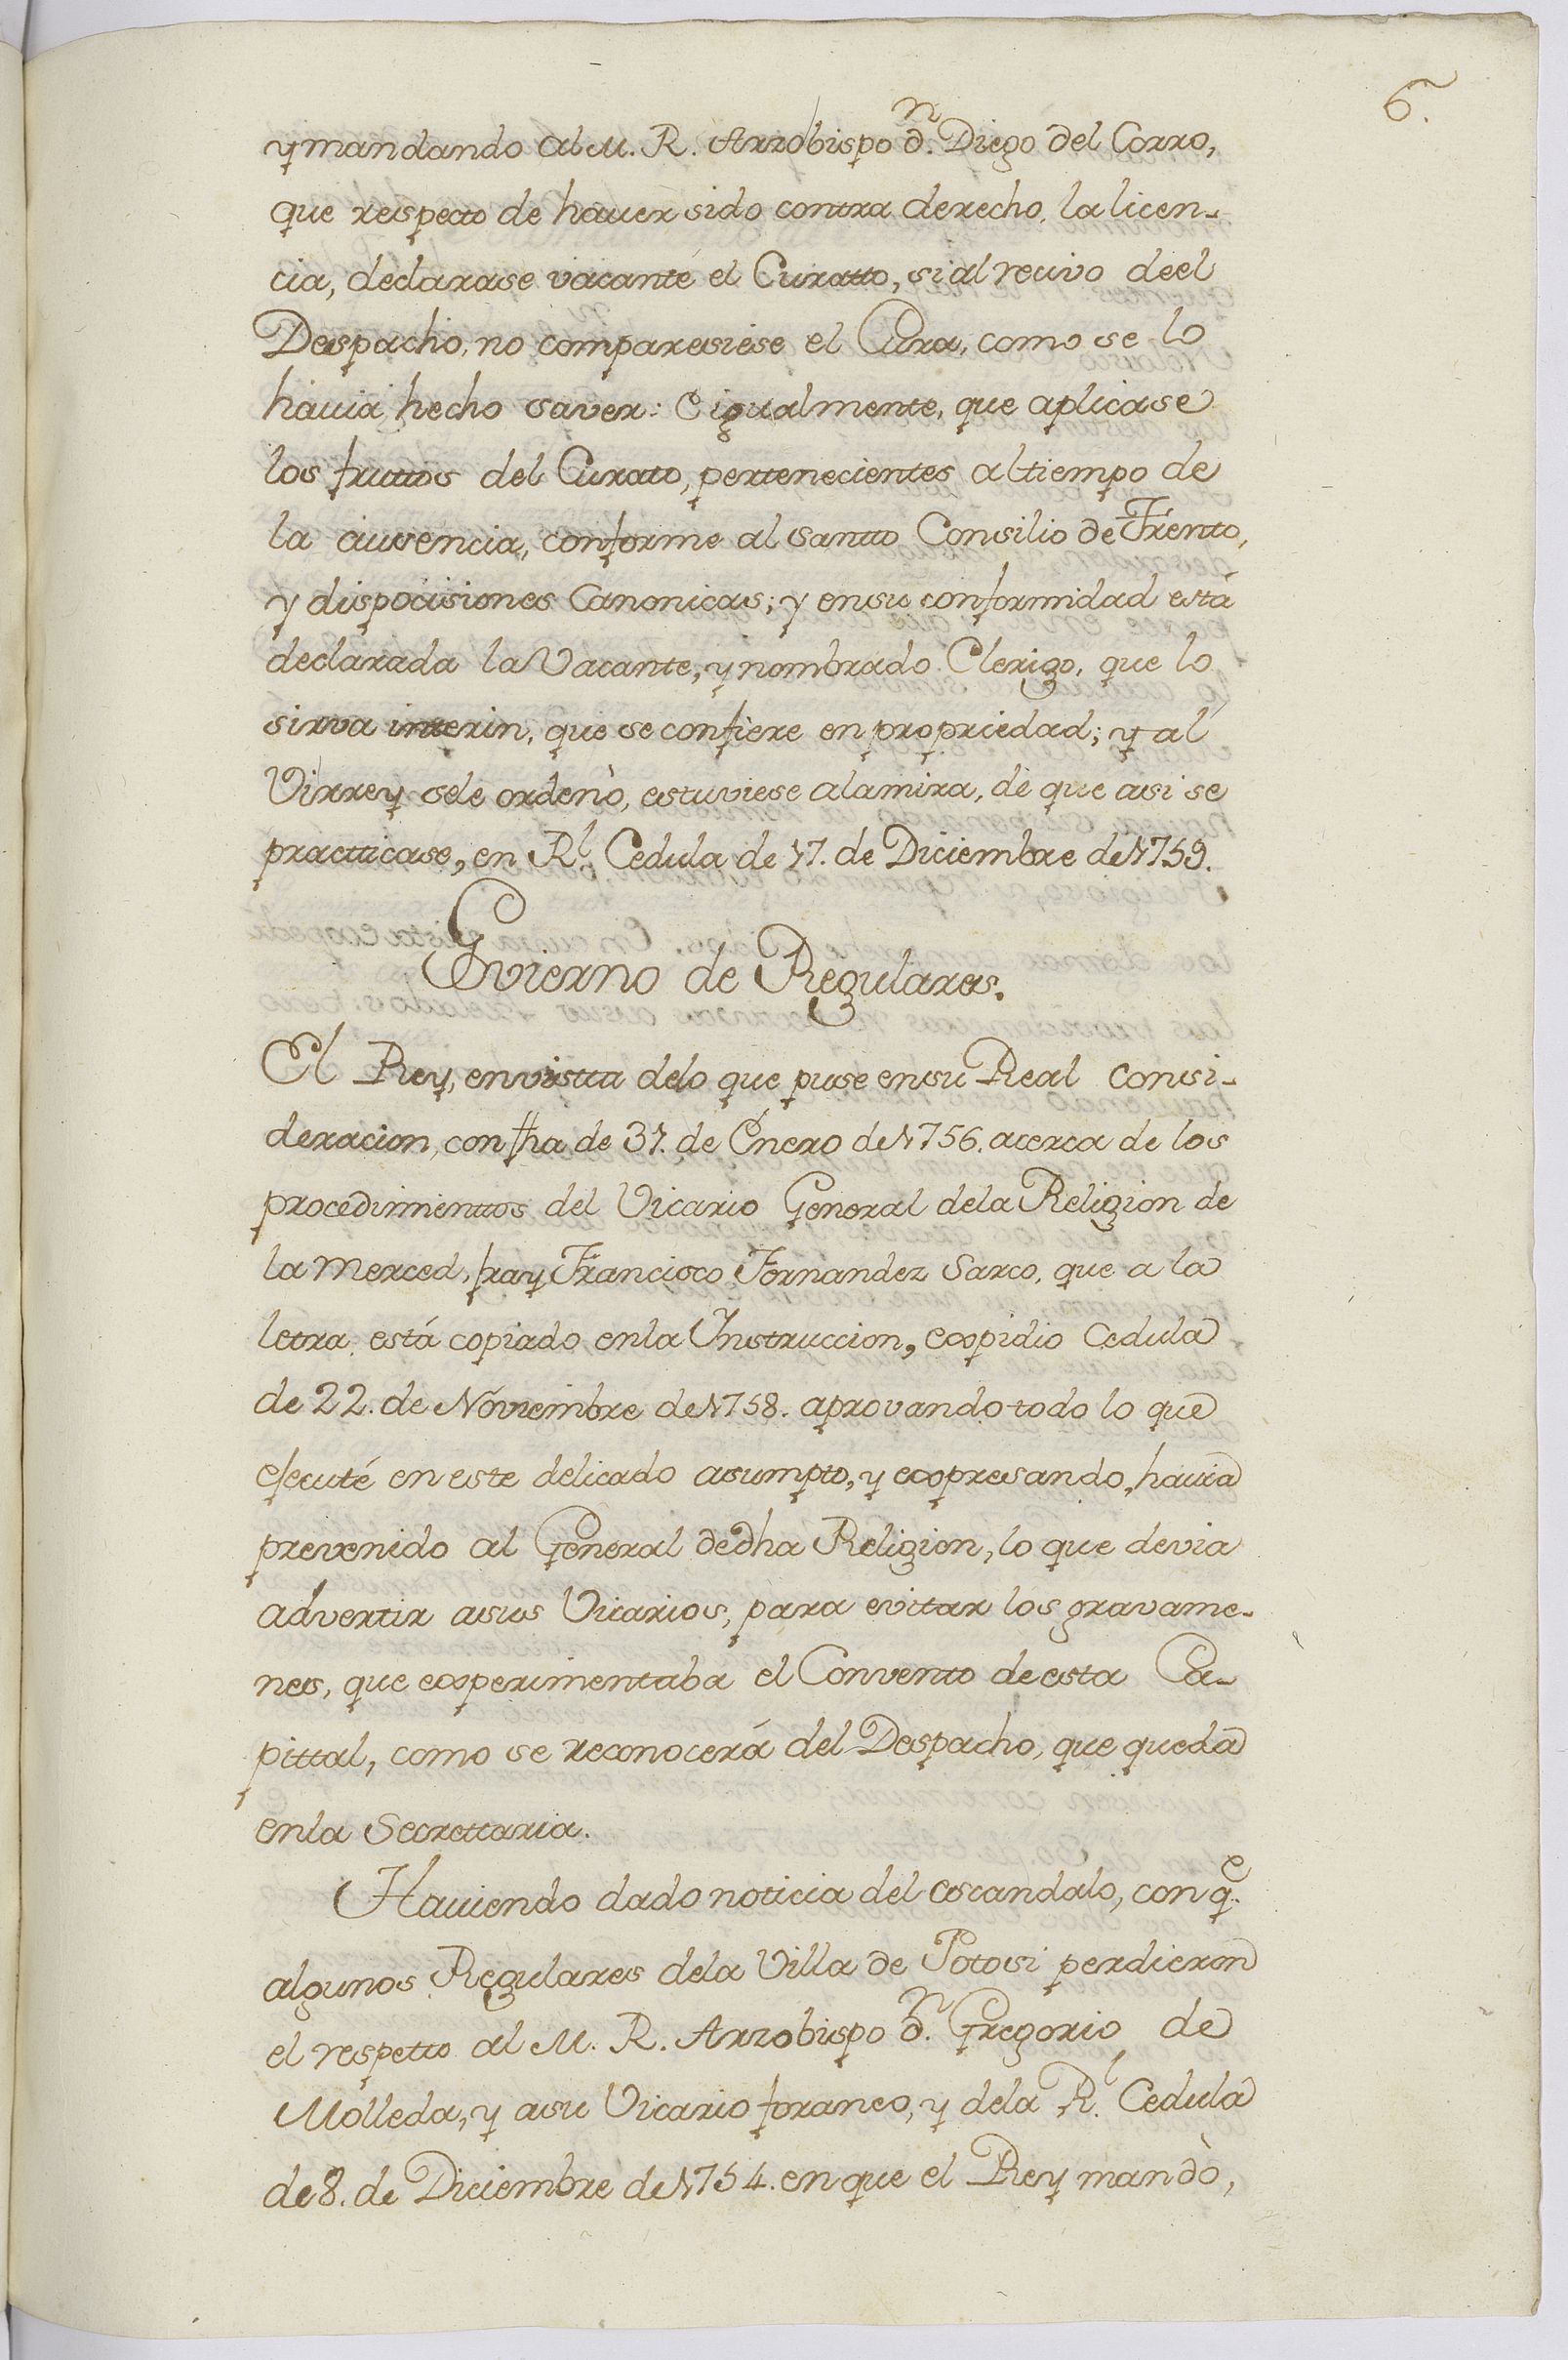 6.
y mandando al M. R. Arzobispo dⁿ. Diego del Corro,
que respecto de haver sido contra derecho, la licen-
cia, declarase vacante el Curatto, si al recivo deel
Despacho, no comparesiese el Cura, como se lo
havia hecho saver: e igualmente, que aplicase
los fruttos del Curato, pertenecientes al tiempo de
la ausencia, conforme al Santto Consilio de Trento,
y dispocisiones Canonicas; y en su conformidad está
declarada la Vacante, y nombrado Clerigo, que lo
sirva interin, que se confiere en propriedad; y al
Virrey sele ordenò, estuviese alamira, de que asi se
practticase, en Rˡ. Cedula de 17. de Diciembre de 1759.
Govierno de Regulares.
El Rey, en vistta delo que puse en su Real Consi-
deracion, con fha de 31. de Enero de 1756. acerca de los
procedimienttos del Vicario General dela Religion de
la Merced, fray Francisco Fernandez Sarco, que a la
letra está copiado enla Instruccion, expidio Cedula
de 22. de Noviembre de 1758. aprovando todo lo que
ejecuté en este delicado asumpto, y expresando, havia
prevenido al General dedha Religion, lo que devia
advertir asus Vicarios, para evittar los gravame-
nes, que experimentaba el Convento de esta Ca-
pittal, como se reconocerá del Despacho, que queda
enla Secrettaria.
Haviendo dado noticia del escandalo, con qᵉ.
algunos Regulares dela Villa de Potosi perdieron
el respetto al M. R. Arzobispo dⁿ. Gregorio de
Molleda, y asu Vicario foraneo, y dela Rˡ. Cedula
de 8. de Diciembre de 1754. en que el Rey mandò,